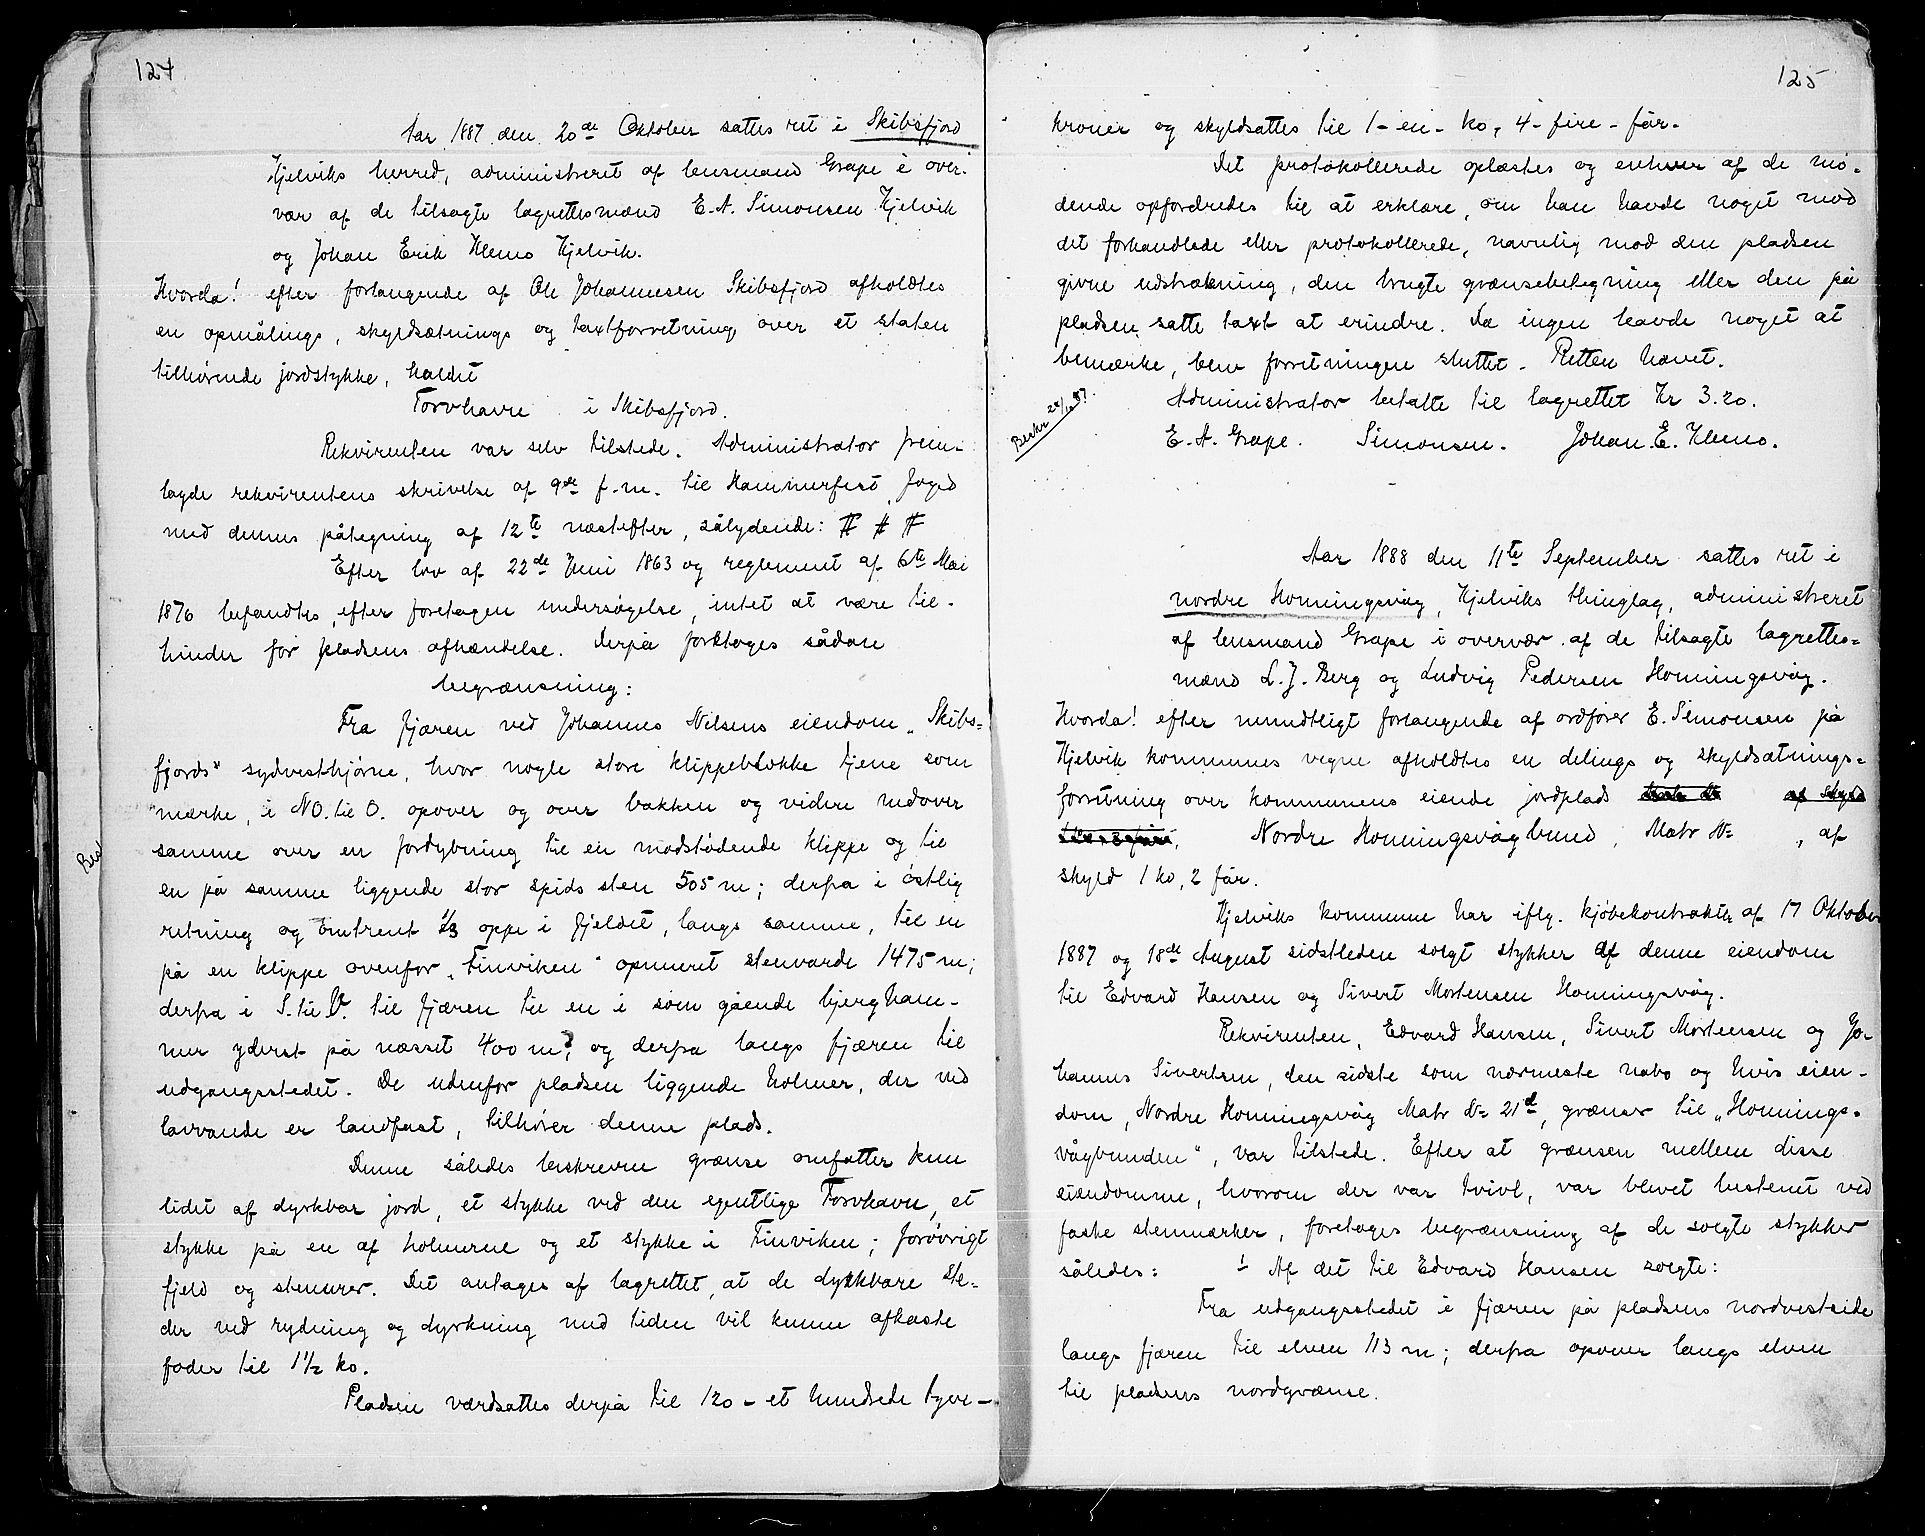 124
Aar 1887 den 20de Oktober sattes ret i Skibsfjord
Kjelviks herred, administreret af lensmand Grape i over-
vær af de tilsagte lagrettesmænd E. A. Simonsen Kjelvik
og Johan Erik Klemo Kjelvik.
Hvorda! efter forlangende af Ole Johannesen Skibsfjord afholdtes
en opmålings, skyldsætnings og taxtforretning over et staten
tilhørende jordstykke, kaldet
Torvhavn i Skibsfjord.
Rekvirenten var selv tilstede. Administrator frem-
lagde rekvirentens skrivelse af 9de f. m. til Hammerfest Foged
med dennes påtegning af 12te næstefter, sålydende: # # #
Efter lov af 22de Juni 1863 og reglement af 6te Mai
1876 befandtes, efter foretagen undersøgelse, intet at være til-
hinder for pladsens afhændelse. Derpå foretoges sådan
begrænsning:
Fra fjæren ved Johannes Nilsens eiendom „Skibs-
fjords" sydvesthjørne, hvor nogle store klippeblokke tjene som
mærke, i NO. til O. opover og over bakken og videre nedover
samme over en fordybning til en modstødende klippe og til
en på samme liggende stor spids sten 505 m; derfra i østlig
retning og omtrent 1/3 oppe i fjeldet, langs samme, til en
på en klippe ovenfor „Finviken" opmuret stenvarde 1475 m;
derfra i S. til V. til fjæren til en i søm gående bjergham-
mer yderst på næsset 400 m, og derfra langs fjæren til
udgangsstedet. De udenfor pladsen liggende holmer, der ved
lavvande er landfast, tilhører denne plads.
Denne således beskrevne grænse omfatter kun
lidet af dyrkbar jord, et stykke ved den egentlige Torvhavn, et
stykke på en af holmerne og et stykke i Finviken; forøvrigt
fjeld og stenurer. Det antages af lagrettet, at de dyrkbare ste-
der ved rydning og dyrkning med tiden vil kunne afkaste
foder til 1 1/2 ko.
Pladsen værdsattes derpå til 120 - et hundrede tyve -
125
kroner og skyldsattes til 1 - en - ko, 4 - fire - får.
Det protokollerede oplæstes og enhver af de mø-
dende opfordredes til at erklære, om han havde noget mod
det forhandlede eller protokollerede, navnlig mod den pladsen
givne udstrækning, den brugte grænsebetegning eller den på
pladsen satte taxt at erindre. Da ingen havde noget at
bemærke, blev forretningen sluttet. Retten hævet.
Administrator betalte til lagrettet Kr 3.20.
Beskr 24/10 87.
E. A. Grape. Simonsen. Johan E. Klemo.
Aar 1888 den 11te September sattes ret i
nordre Honningsvåg, Kjelviks thinglag, administreret
af lensmand Grape i overvær af de tilsagte lagrettes-
mænd L. J. Berg og Ludvig Pedersen Honningsvåg.
Hvorda! efter mundtligt forlangende af ordfører E. Simonsen på
Kjelvik kommunes vegne afholdtes en delings og skyldsætnings-
forretning over kommunens eiende jordplads
Nordre Honningsvågbund, Matr № , af
skyld 1 ko, 2 får.
Kjelviks kommune har iflg. kjøbekontrakter af 17 Oktober
1887 og 18de August sidstleden solgt stykker af denne eiendom
til Edvard Hansen og Sivert Mortensen Honningsvåg.
Rekvirenten, Edvard Hansen, Sivert Mortensen og Jo-
hannes Sivertsen, den sidste som nærmeste nabo og hvis eien-
dom, Nordre Honningsvåg Matr № 21d, grænser til „Honnings-
vågbunden", var tilstede. Efter at grænsen mellem disse
eiendomme, hvorom der var tvivl, var blevet bestemt ved
faste stenmærker, foretoges begrænsning af de solgte stykker
således: 1 Af det til Edvard Hansen solgte:
Fra udgangsstedet i fjæren på pladsens nordvestside
langs fjæren til elven 113 m; derfra opover langs elven
til pladsens nordgrænse.